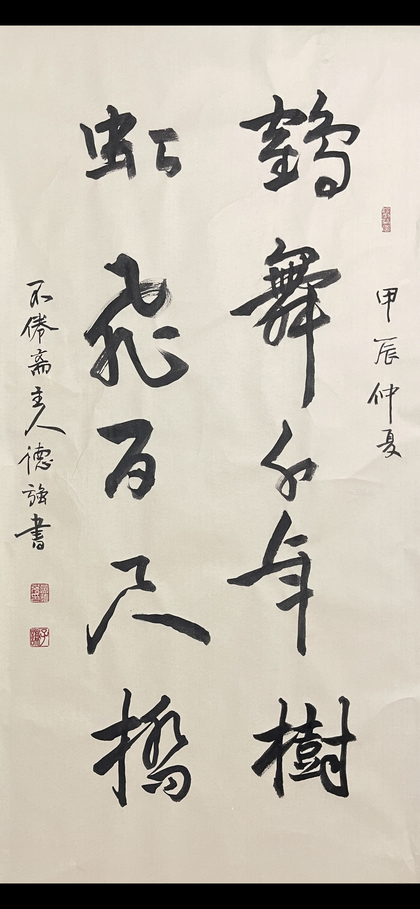 甲辰仲夏
鶴舞千年樹
虹飛百尺橋
不倦斋主人德強書